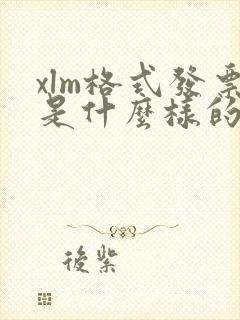 xlm格式發票
是什麼樣的
後紫